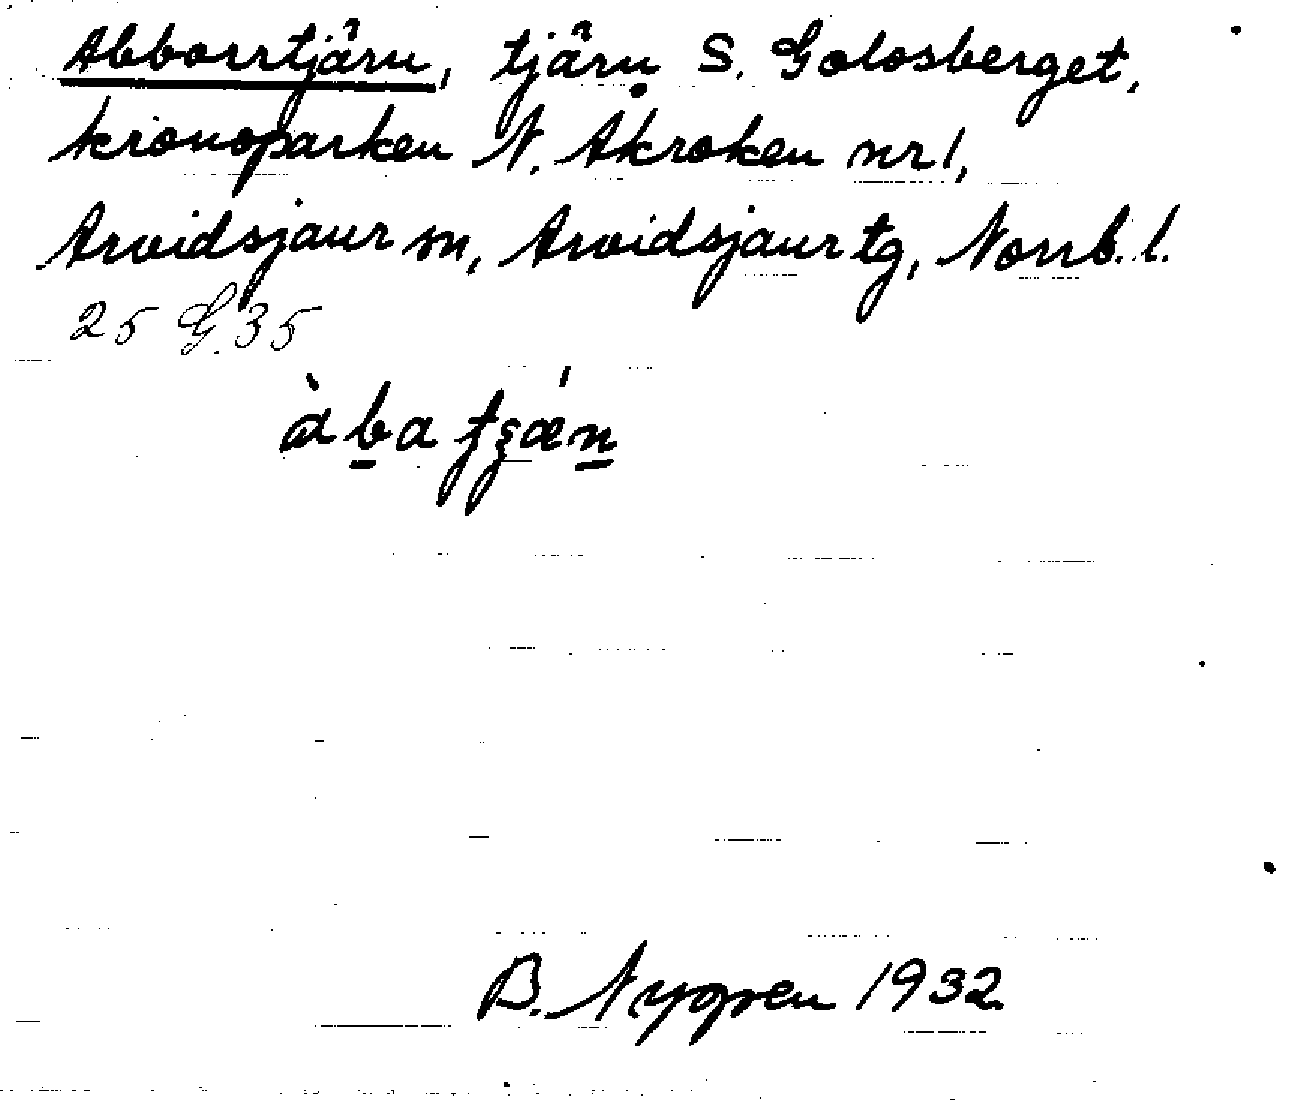 Abborrtjärn, tjärn S. Golosberget,
kronoparken N. Åkroken nr 1,
Arvidsjaur sn, Arvidsjaur tg, Norrb. l.
25 G. 35
B. Nygren 1932